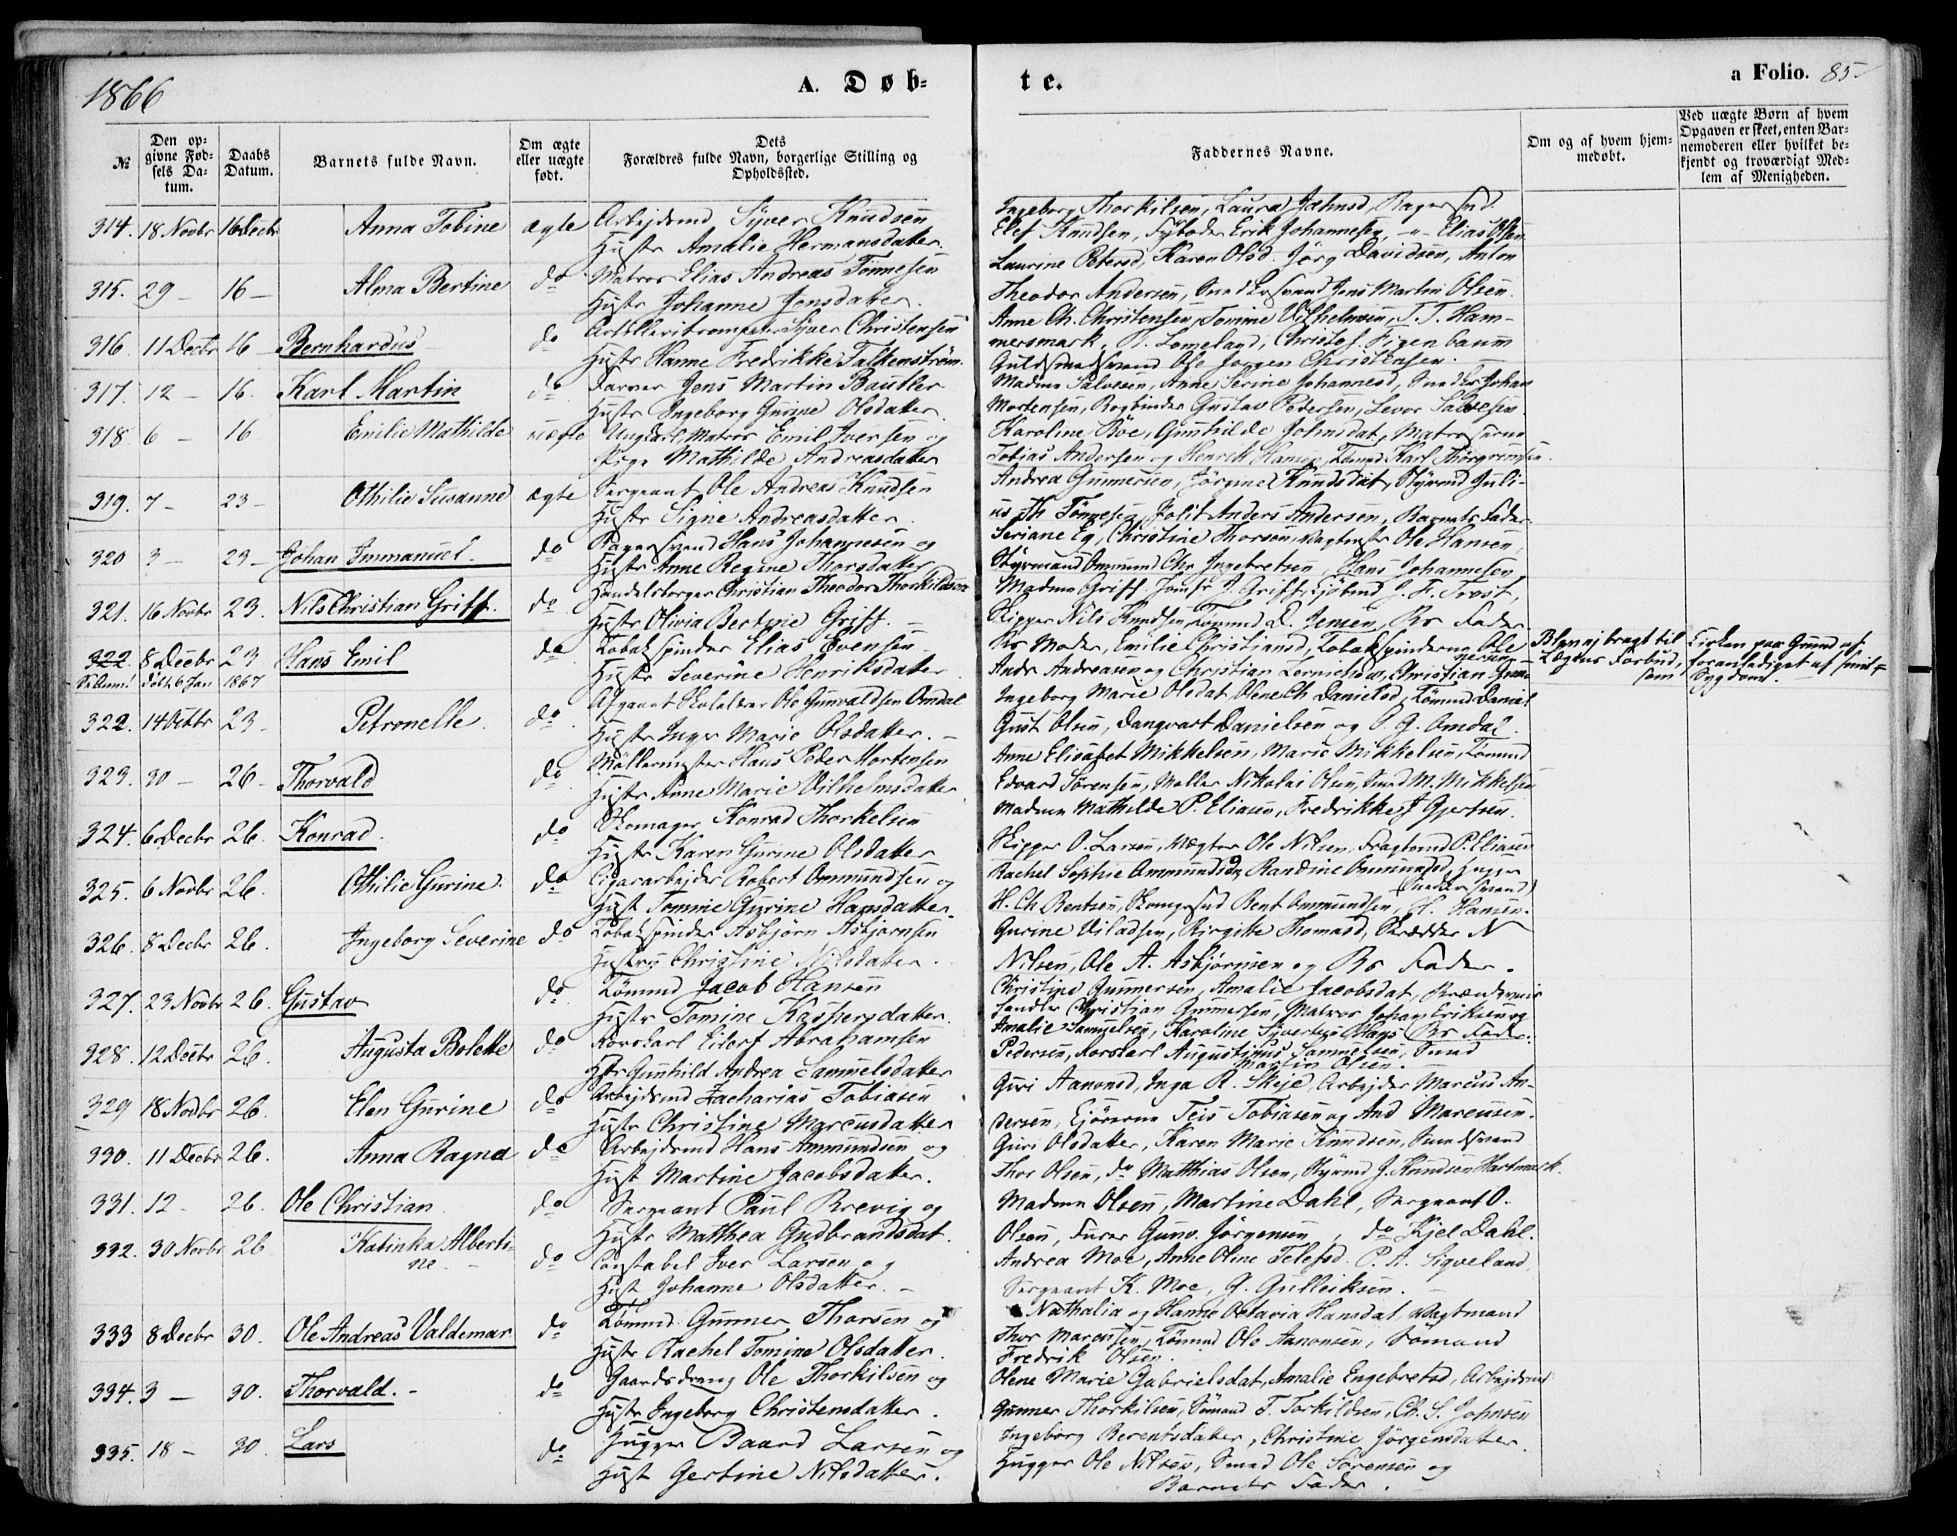 1866
A. Døb-
te.
a Folio. 85
№
Den opgivne Fødsels Datum.
Daabs Datum.
Barnets fulde Navn.
Om ægte eller uægte født.
Dets Forældres fulde Navn, borgerlige Stilling og Opholdssted.
Faddernes Navne.
Om og af hvem hjemmedøbt.
Ved uægte Børn af hvem Opgaven er skeet, enten Barnemoderen eller hvilket bekjendt og troværdigt Medlem af Menigheden.
314. 18 Novbr 16 Decbr Anna Tobine ægte Arbejdsmd Syver Knudsen
Hustr Amalie Hermansdatter.
Ingeborg Thorkilsen, Laura Jahnsd,
Elef Knudsen, Erik Johannesen, Elias Olsen
315. 29 - 16 - Alma Bertine do Matros Elias Andreas Tønnesen
Hustr Johanne Jensdatter.
Laurine Petersd, Karen Olsd. Jørg Davidsen, Anton
Theodor Andersen, Jens Martin Olsen.
316. 11 Decbr 16 - Bernhardus do Syver Christensen
Hustr Hanne Fredrikke Falkenstrøm.
Anne Ch. Christensen, Tomine Vilhelmsen, T. T. Ham-
mersmark, T. Lomeland, Christof. Figenbaum
Ole Jørgen Christensen.
317. 12 - 16. Karl Martin do Farver Jens Martin Bautler
Hustr Ingeborg Gurine Olsdatter.
Madme Salvesen, Anne Serine Johannesd, Johan
Mortensen, Bogbinder Gustav Pedersen, Levor Salvesen
318. 6 - 16 Emilie Mathilde uægte Ungkarl Matros Emil Iversen og
Pige Mathilde Andreasdatter
Karoline Bøe, Gunhilde Johnsdat,
Tobias Andersen og Henrik Hansen, Karl Thorgrimsen.
319. 7 - 23 - Othilie Susanne ægte Sergeant Ole Andreas Knudsen
Hustr Signe Andreasdatter.
Andrea Gunnersen, Jørgine Knudsdat, Styrmd Juli-
us Th Tønnesen, Polit Anders Andersen, Barnets Fader
320 3 - 23 - Johan Immanuel. do Bagersvend Hans Johannesen og
Hustr Anne Regine Thorsdatter
Seriane Eg, Christine Thorsen, Vagtmstr Ole Hansen,
Styrmand Ommund Chr Ingebretsen, Hans Johannesen
321. 16 Novbr 23. Nils Christian Griff. do Handelsborger Christian Theodor Thorkildsen
Hustr Olivia Bertine Griff. -
Madme Griff, Jomfr J. Griff, Kjøbmd J. F. Trost,
Skipper Nils Knudsen, Tømmd D. Jensen, Bs Fader.
322 8 Decbr 23 Hans Emil do Tobakspinder Elias Evensen
døbt 6 Jan 1867 Hustr Severine Henriksdatter.
Bs Moder, Emilie Christiansd, Tobakspinderne Ole
Andr Andreasen og Christian
Blev ej bragt til Kirken paa Grund af
Lægens Forbud, foranlediget af smit-
som Sygdom.
322. 14 Octbr 23 - Petronelle. do Afgaaet Skolelærer Ole Gunvaldsen Omdal
Hustr Inger Marie Olsdatter. -
Ingeborg Marie Olsdat, Olene Ch Danielsd, Tømmd Daniel
Gust Olsen, Dangvart Danielsen og P. G. Omdal.
323. 30 - 26 - Thorvald do Møllermester Hans Peder Mortensen
Hustr Anne Marie Vilhelmsdatter
Anne Elisabet Mikkelsen, Marie Mikkelsen, Tømmd
Edvard Sørensen, Møller Nikolai Olsen, M. Mikkelsen
324. 6 Decbr 26. Konrad. do Skomager Konrad Thorkelsen
Hustr Karen Gurine Olsdatter
Madme Mathilde P. Eliasen, Fredrikke J Gjertsen.
Skipper O. Larsen, Vægter Ole Nilsen, Fragtmd P. Eliasen
325. 6 Novbr 26. Othilie Gurine. do Cigararbejder Robert Ommundsen og
Hust Tomine Gurine Hansdatter.
Rachel Sophie Ommundsen, Randine Ommundsd, Hugger
H. Ch Bentsen, Bent Ommundsen, H. Hansen.
326. 8 Decbr 26. Ingeborg Severine do Tobakspinder Asbjørn Asbjørnsen
Hustru Christine Nilsdatter.
Gurine Viladsen, Birgitte Thomasd, Skrædder N
Nilsen, Ole A. Asbjørnsen og Bs Fader.
327. 23 Novbr 26. Gustav do Tømmd Jacob Hansen
Hustr Tomine Kaspersdatter.
Christine Gunnersen, Amalie Jacobsdat, Brændeviins
handler Christian Gunnersen, Matros Johan Eriksen og
Bs Fader.
328. 12 Decbr 26. Augusta Bolette do Rorskarl Eilerf Abrahamsen
Hstr Gunhild Andrea Samuelsdatter
Amalie Samuelsen, Karoline Syvertsen, Hans
Pedersen, Rorskarl Augustinus Samuelsen,
Martin Olsen.
329 18 Novbr 26. Elen Gurine do Arbejdsmd Zacharias Tobiasen
Hustr Christine Marcusdatter
Guri Aanonsd, Inga R. Skeje, Arbejder Marcus An-
dersen, Teis Tobiasen og And Marcussen.
330. 11 Decbr 26. Anna Ragna do Arbejdsmd Hans Ammundsen og
Hust Martine Jacobsdatter.
Guri Olsdatter, Karen Marie Knudsen,
Thor Olsen, do Matthias Olsen, Styrmd J. Knudsen Hartmark.
331. 12 - 26. Ole Christian do Sergeant Paul Brevig og
Hustr Matthea Gudbrandsdat.
Madme Olsen, Martine Dahl, Sergeant O.
Olsen, Furer Gunv. Jørgensen, do Kjel Dahl.
332. 30 Novbr 26 Katinka Alberti-
ne - do Constabel Iver Larsen og
Hust Johanne Olsdatter. -
Andrea Moe, Anne Oline Telefsd. P. A. Sigveland,
Sergeant K. Moe, G. Gulleiksen.
333 8 Decbr 30. Ole Andreas Valdemar do Tømmd Gunner Thorsen og
Hustr Rachel Tomine Olsdatter.
Nathalia og Hanne Octavia Hansdat, Vagtmand
Thor Marcussen, Tømmd Ole Aanonsen, Sømand
Fredrik Olsen.
334. 3 - 30. Thorvald. - do Gaardsdreng Ole Thorkilsen og
Hustr Ingeborg Christensdatter.
Olene Marie Gabrielsdat, Amalie Engebretsd, Arbejdsmd
Gunner Thorkilsen, Sømand T. Torkildsen, Ch. S. Johnsen
335. 18 - 30. Lars do Hugger Baard Larsen og
Hust Gertine Nilsdatter.
Ingeborg Berentsdatter, Christine Jørgensdatter.
Hugger Ole Nilsen, Smed Ole Sørensen og
Barnets Fader.